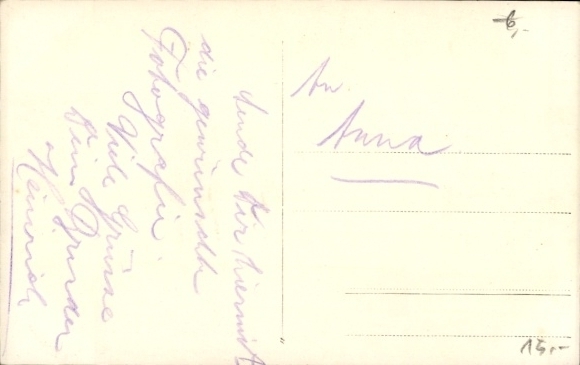 sende Dir hiermit
die gewünschte
Fotografie
Viele Grüsse
Dein Bruder
Heinrich
An
Anna
6,-
15,-